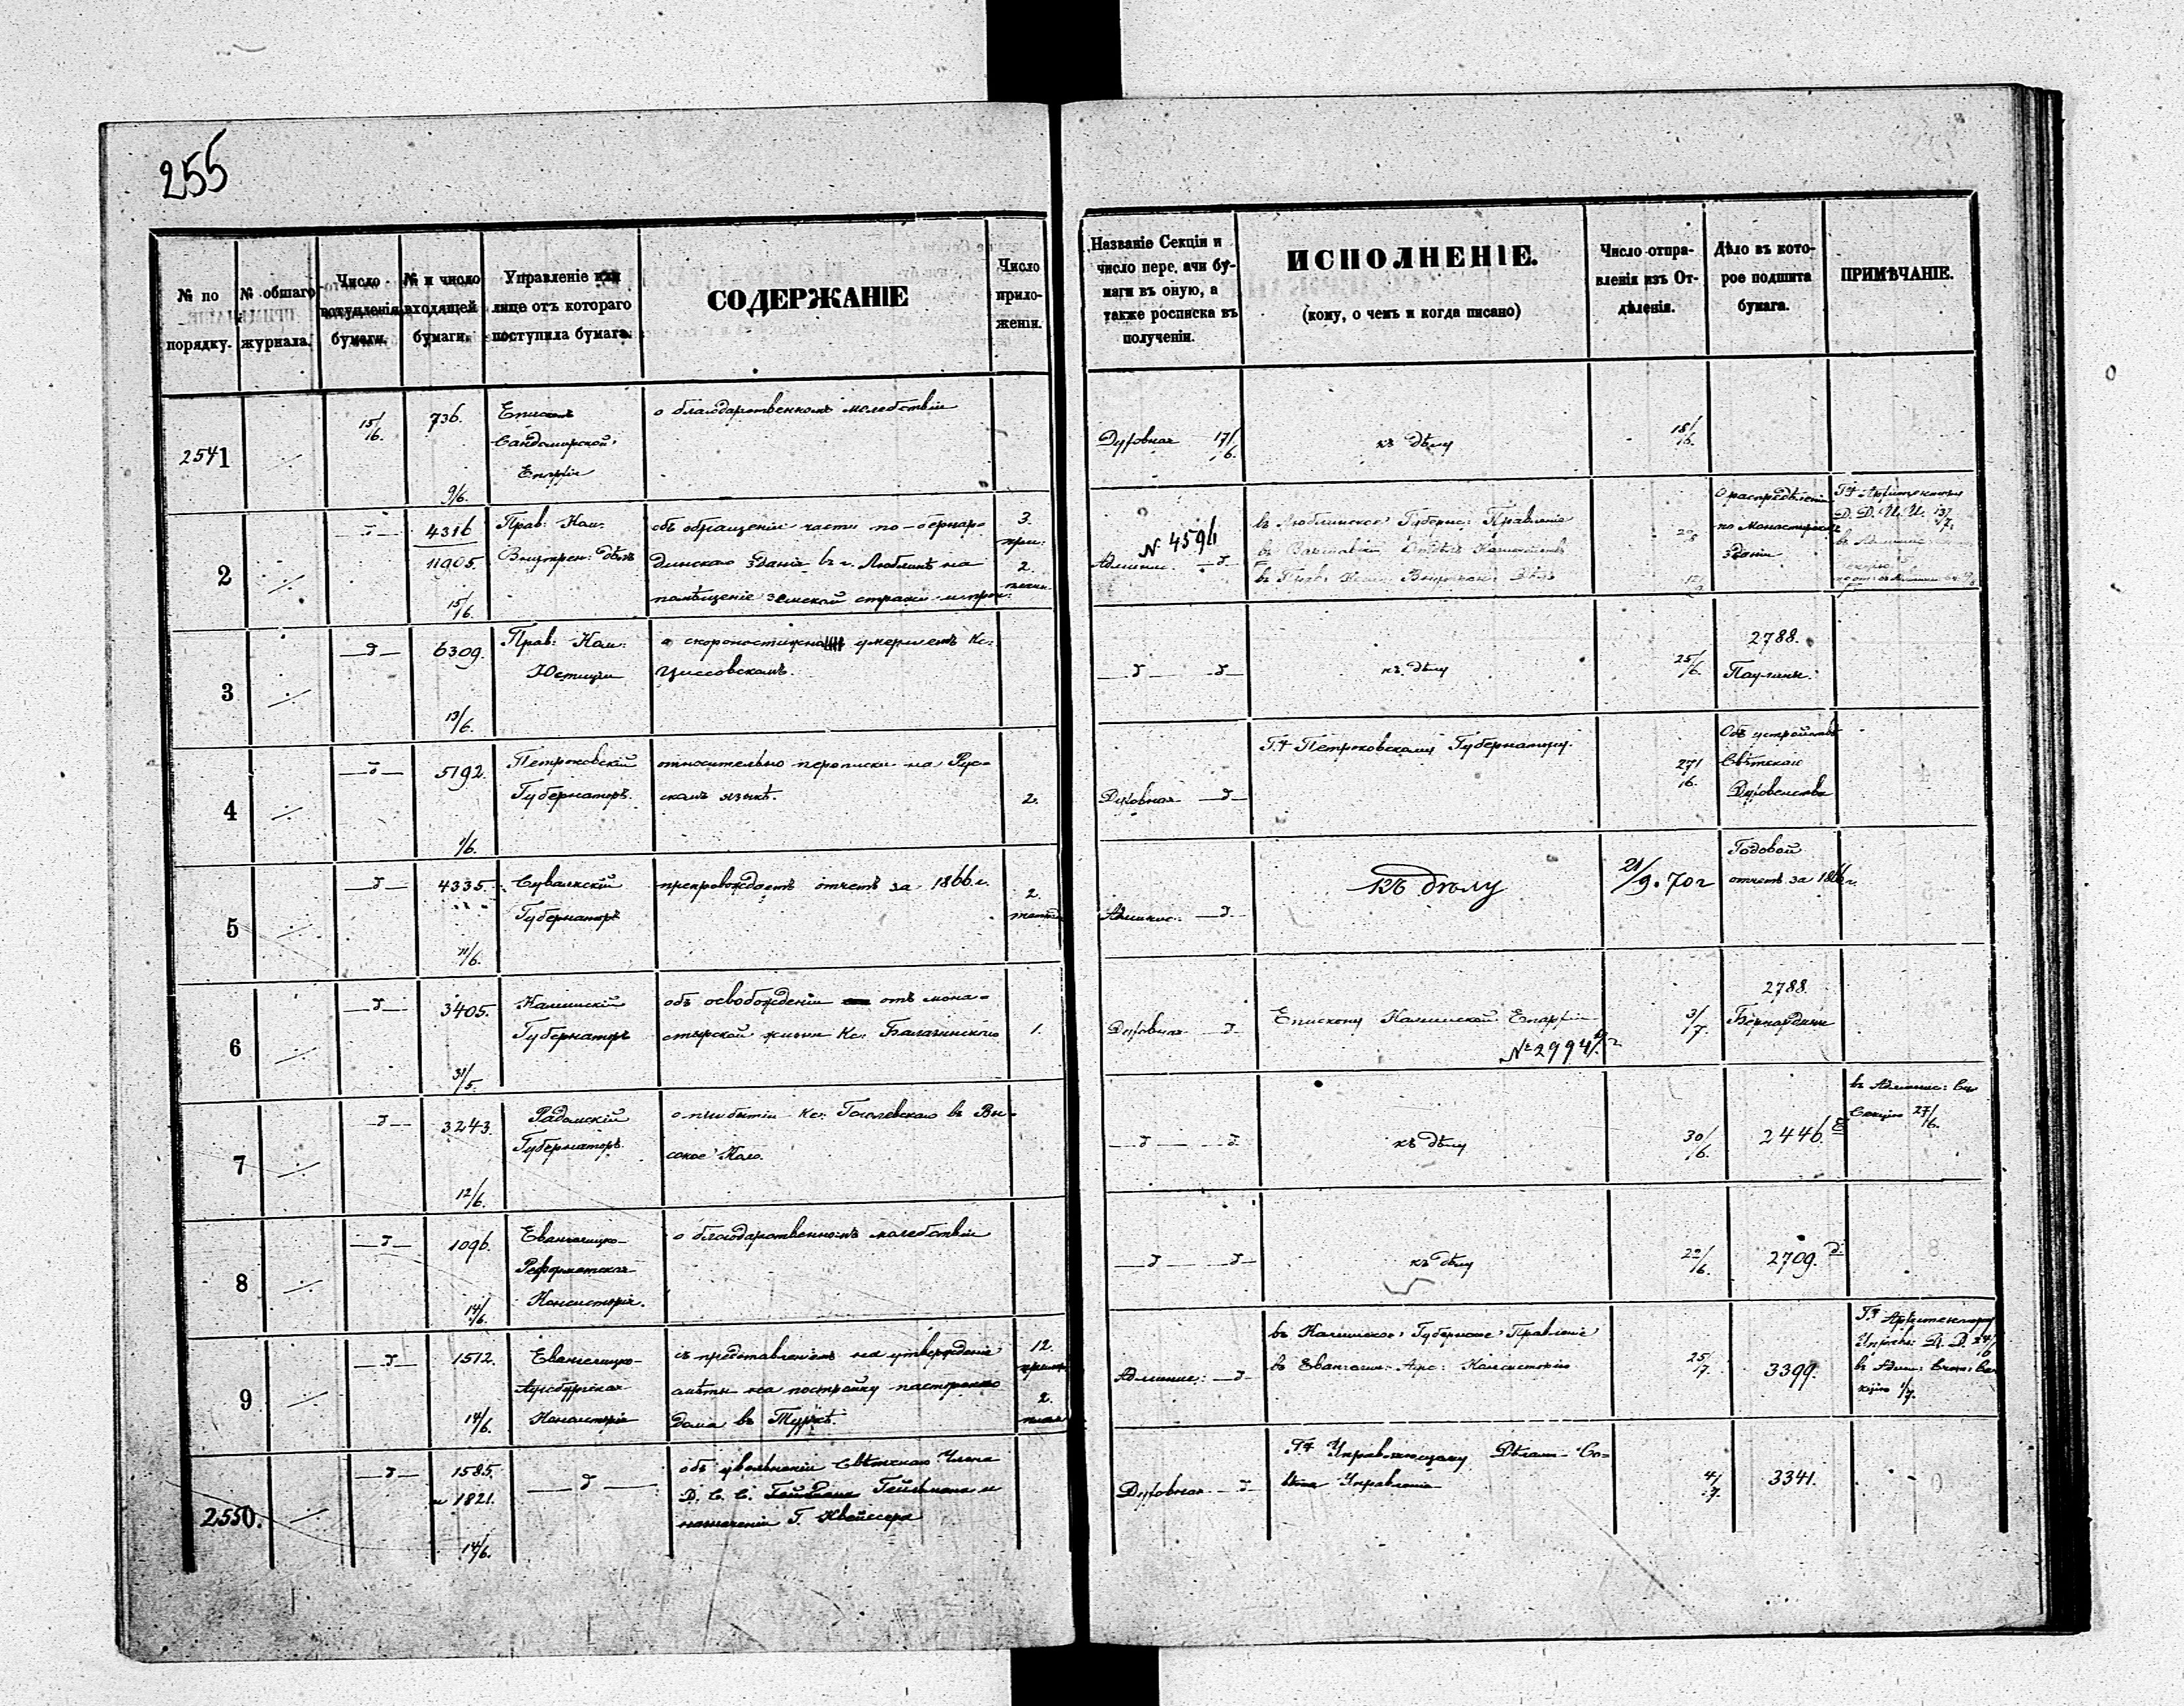 255
№ по порядку.
№ общаго журнала.
Число поступленія бумаги.
№ и число входящей бумаги.
Управленіе или лице отъ котораго поступила бумага.
СОДЕРЖАНІЕ
Число приложеній.
Названіе Секціи и число передачи бумаги въ оную, а также росписка въ полученіи.
ИСПОЛНЕНІЕ.
(кому, о чемъ и когда писано)
Число отправленія изъ Отдѣленія.
Дѣло въ которое подшита бумага.
ПРИМѢЧАНІЕ.
2541
15/6.
736.
9/6.
Сандомирской
Епархіи
о благодарственномъ молебствіи
Духовная 17/6.
къ дѣлу
18/6.
2
4316
11905.
15/6.
Прав: Ком:
Внутрен: дѣлъ
объ обращеніи части по-бернар-
динскаго зданія въ г. Люблинѣ на
помѣщеніе земской стражи
3.
2.
№ 4594
Админис. —д—
въ Люблинское Губернс: Правленіе
О распредѣленіи
по Монастырск
зданіи
3
—д—
6309.
13/6.
Прав: Ком:
Юстиціи
о скоропостижно умершемъ Кс:
Циссовскомъ.
—д— —д—
къ дѣлу
25/6.
2788.
Паулины.
4
—д—
5192.
1/6.
Петроковскій
Губернаторъ.
относительно переписки на Рус-
скомъ языкѣ.
2.
Духовная —д—
Г.ну Петроковскому Губернатору.
27/6.
Объ устройствѣ
Свѣтскаго
Духовенства
5
—д—
4335.
11/6.
Сувалкскій
Губернаторъ
препровождаетъ отчетъ за 1866 г.
2
Админис. —д—
къ дѣлу
21/9. 70 г
Годовой
отчетъ за 1866 г.
6
—д—
3405.
31/5.
Калишскій
Губернаторъ
объ освобожденіи отъ мона-
стырской жизни Кс:
1.
Духовная —д
Епископу Калишской Епархіи
№ 2994
3/7.
2788.
Бернардины
7
—д—
3243.
12/6.
Радомскій
Губернаторъ.
о прибытіи Кс: Гоголевскаго въ Вы-
сокое Коло.
—д— —д.
къ дѣлу
30/6.
2446.
въ Админис:
Секцію 27/6.
8
—д—
1096.
14/6.
Евангелицко-
Реформатская
Консисторія.
о благодарственномъ молебствіи
—д— —д—
къ дѣлу
22/6.
2709. д.
9
—д—
1512.
14/6.
Евангелицко-
Аугсбургская
Консисторія
съ представленіемъ на утвержденіе
смѣты на постройку пасторскаго
дома въ Туркѣ.
12.
2.
Админис: —д—
въ Калишское Губернское Правленіе
въ Евангели: Аугс: Консисторію
25/7.
3399.
2550.
—д—
1585.
и 1821.
14/6.
—д—
объ увольненіи Свѣтскаго Члена
Д. С. С. Гейльмана и
назначеніи Г.
Духовная —д
Г.ну Управляющему Дѣлами Со-
Управленія
4/7.
3341.